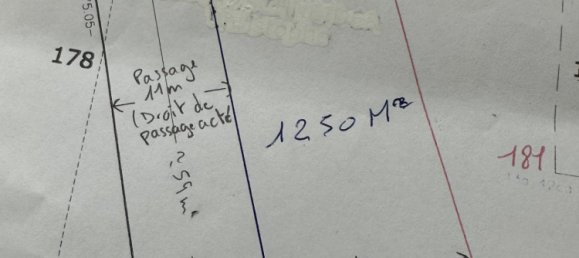 5.05-
178
Passage
11m
(Droit de
passage acté
259m.
1250 M²
181